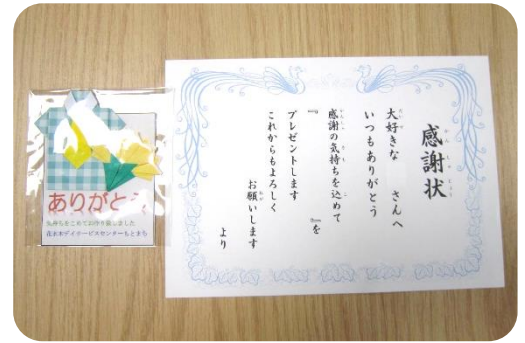 感謝状
大好きな　　さんへ
いつもありがとう
感謝の気持ちを込めて
『　　　　　』を
プレゼントします
これからもよろしく
お願いします
より
ありがとう
気持ちをこめてお作り致しました
花水木デイサービスセンターもとまち